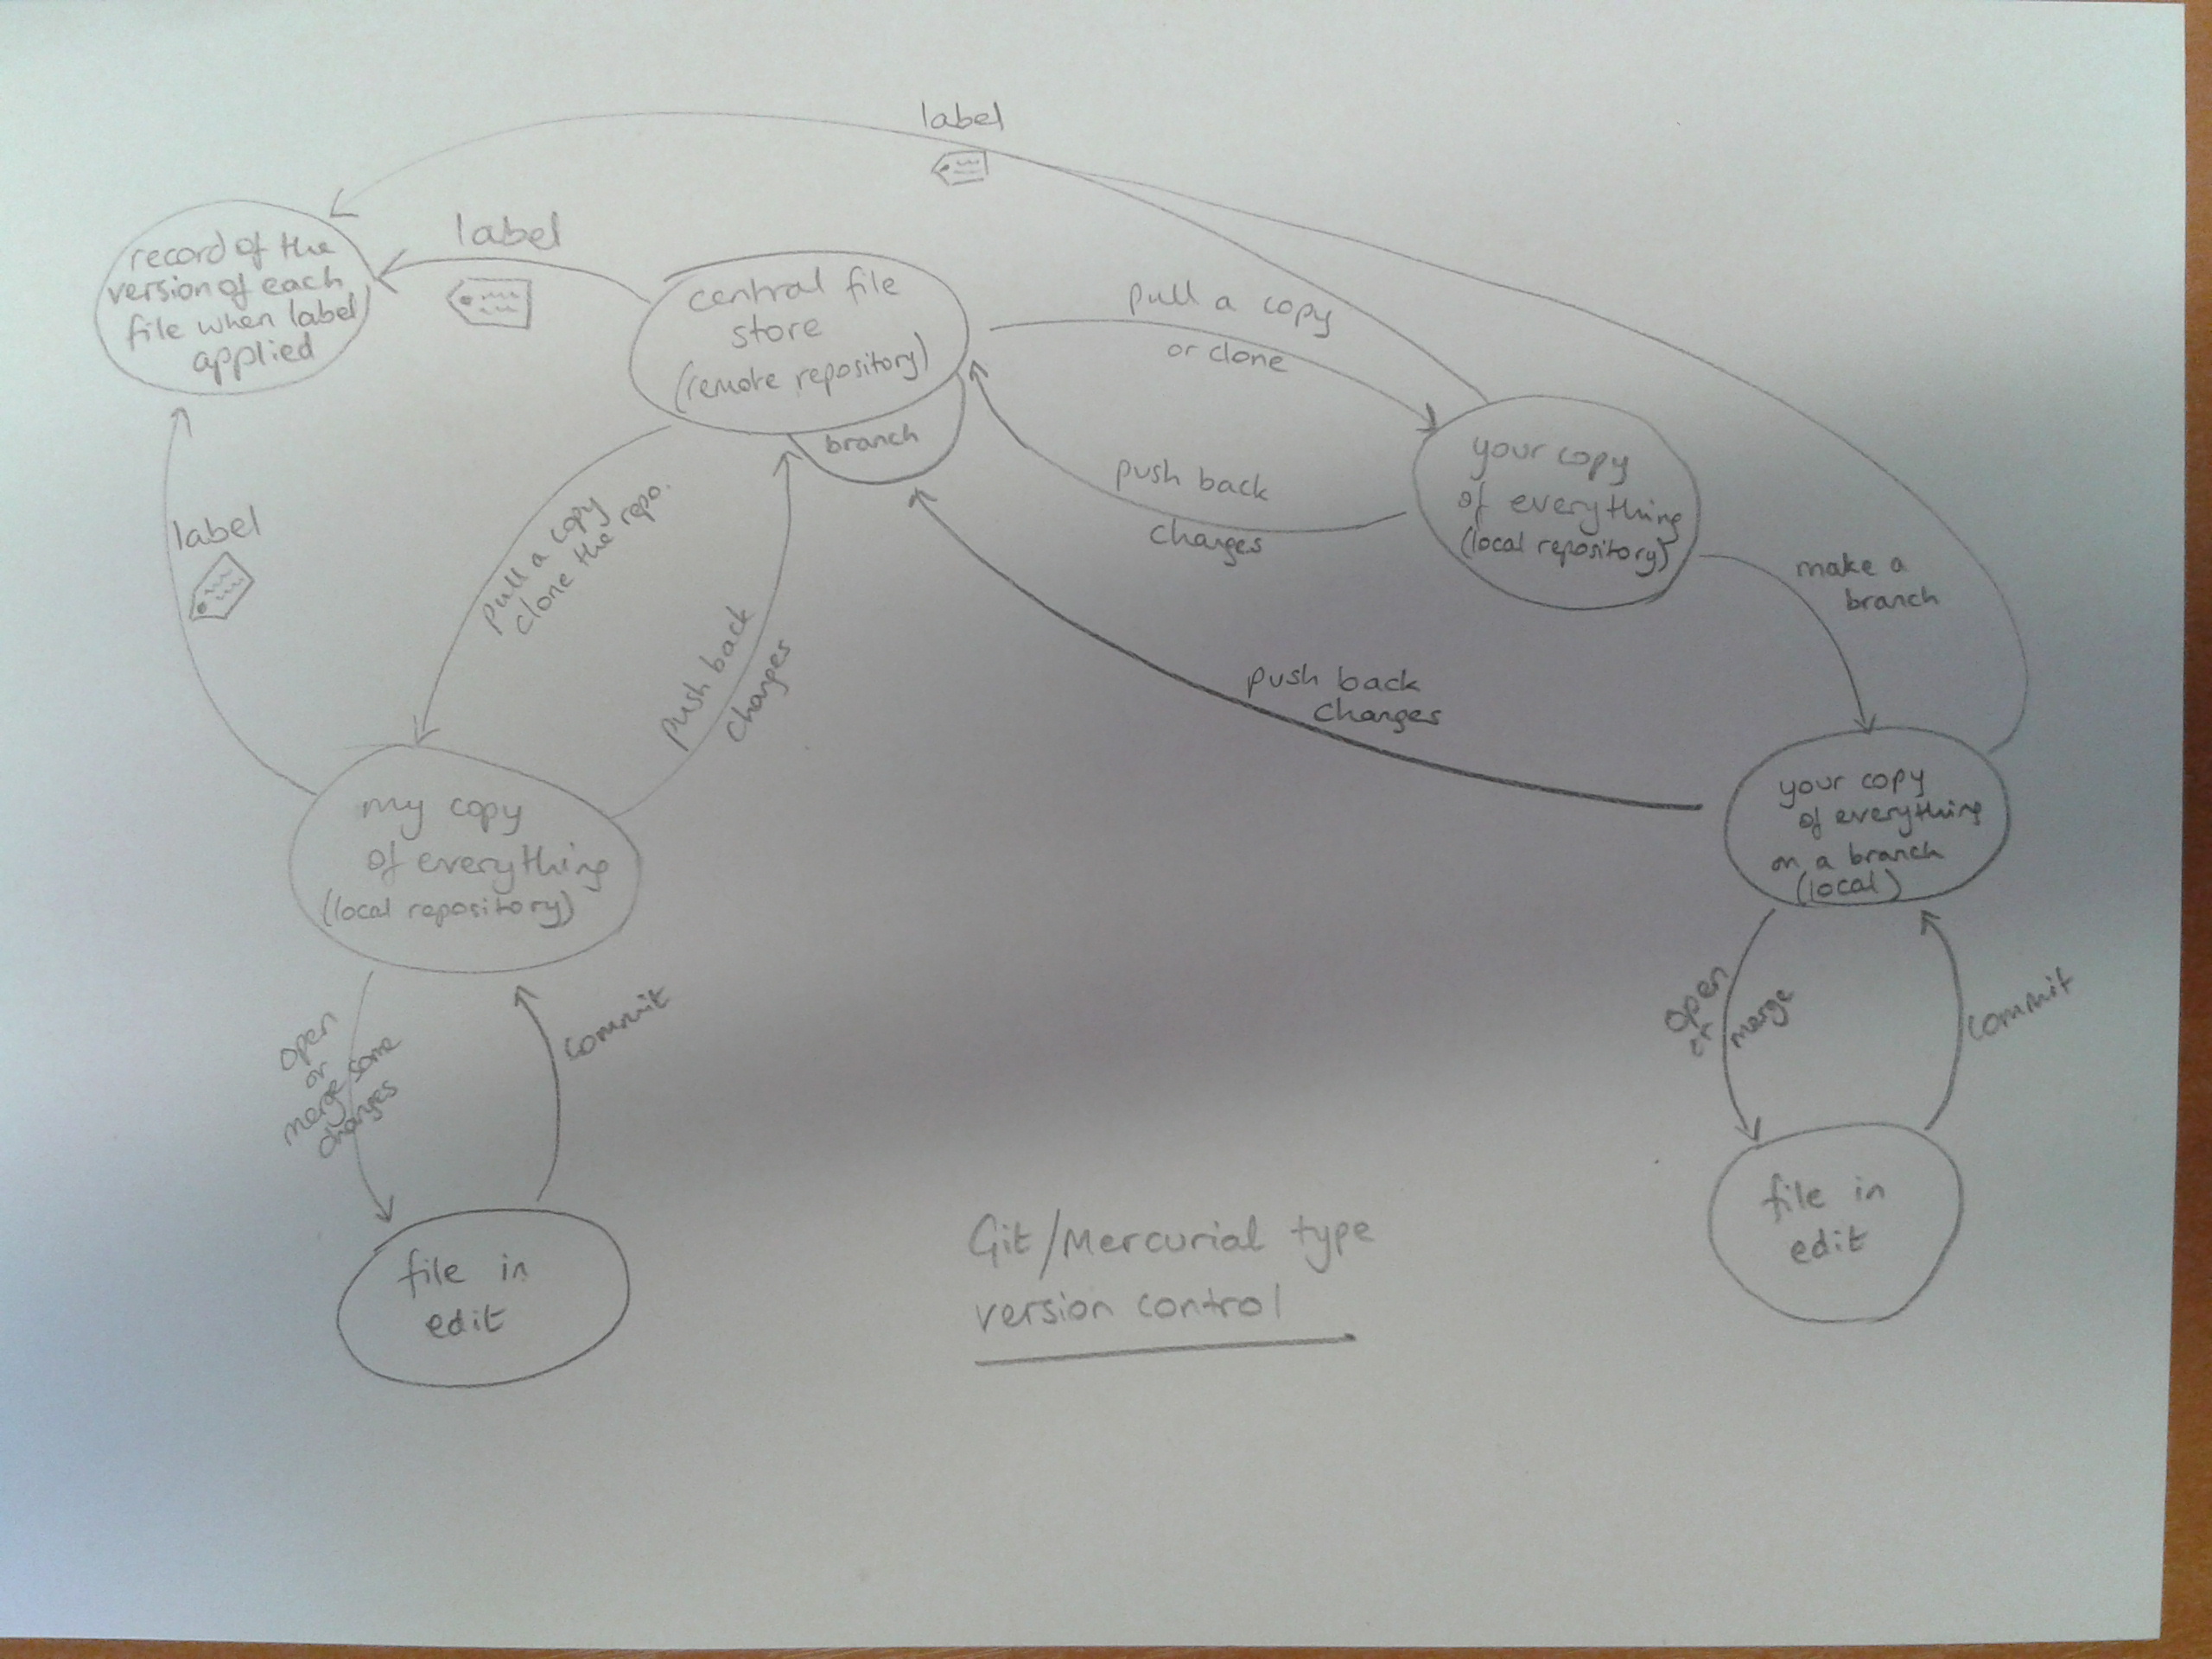 label
label
record of the
version of each
file when label
applied
central file
store
(remote repository)
branch
pull a copy
or clone
your copy
of everything
(local repository)
push back
changes
label
pull a copy
clone the repo.
push back
changes
make a
branch
push back
changes
my copy
of everything
(local repository)
your copy
of everything
on a branch
(local)
open
or
merge some
changes
commit
open
or
merge
commit
file in
edit
file in
edit
Git/Mercurial type
version control